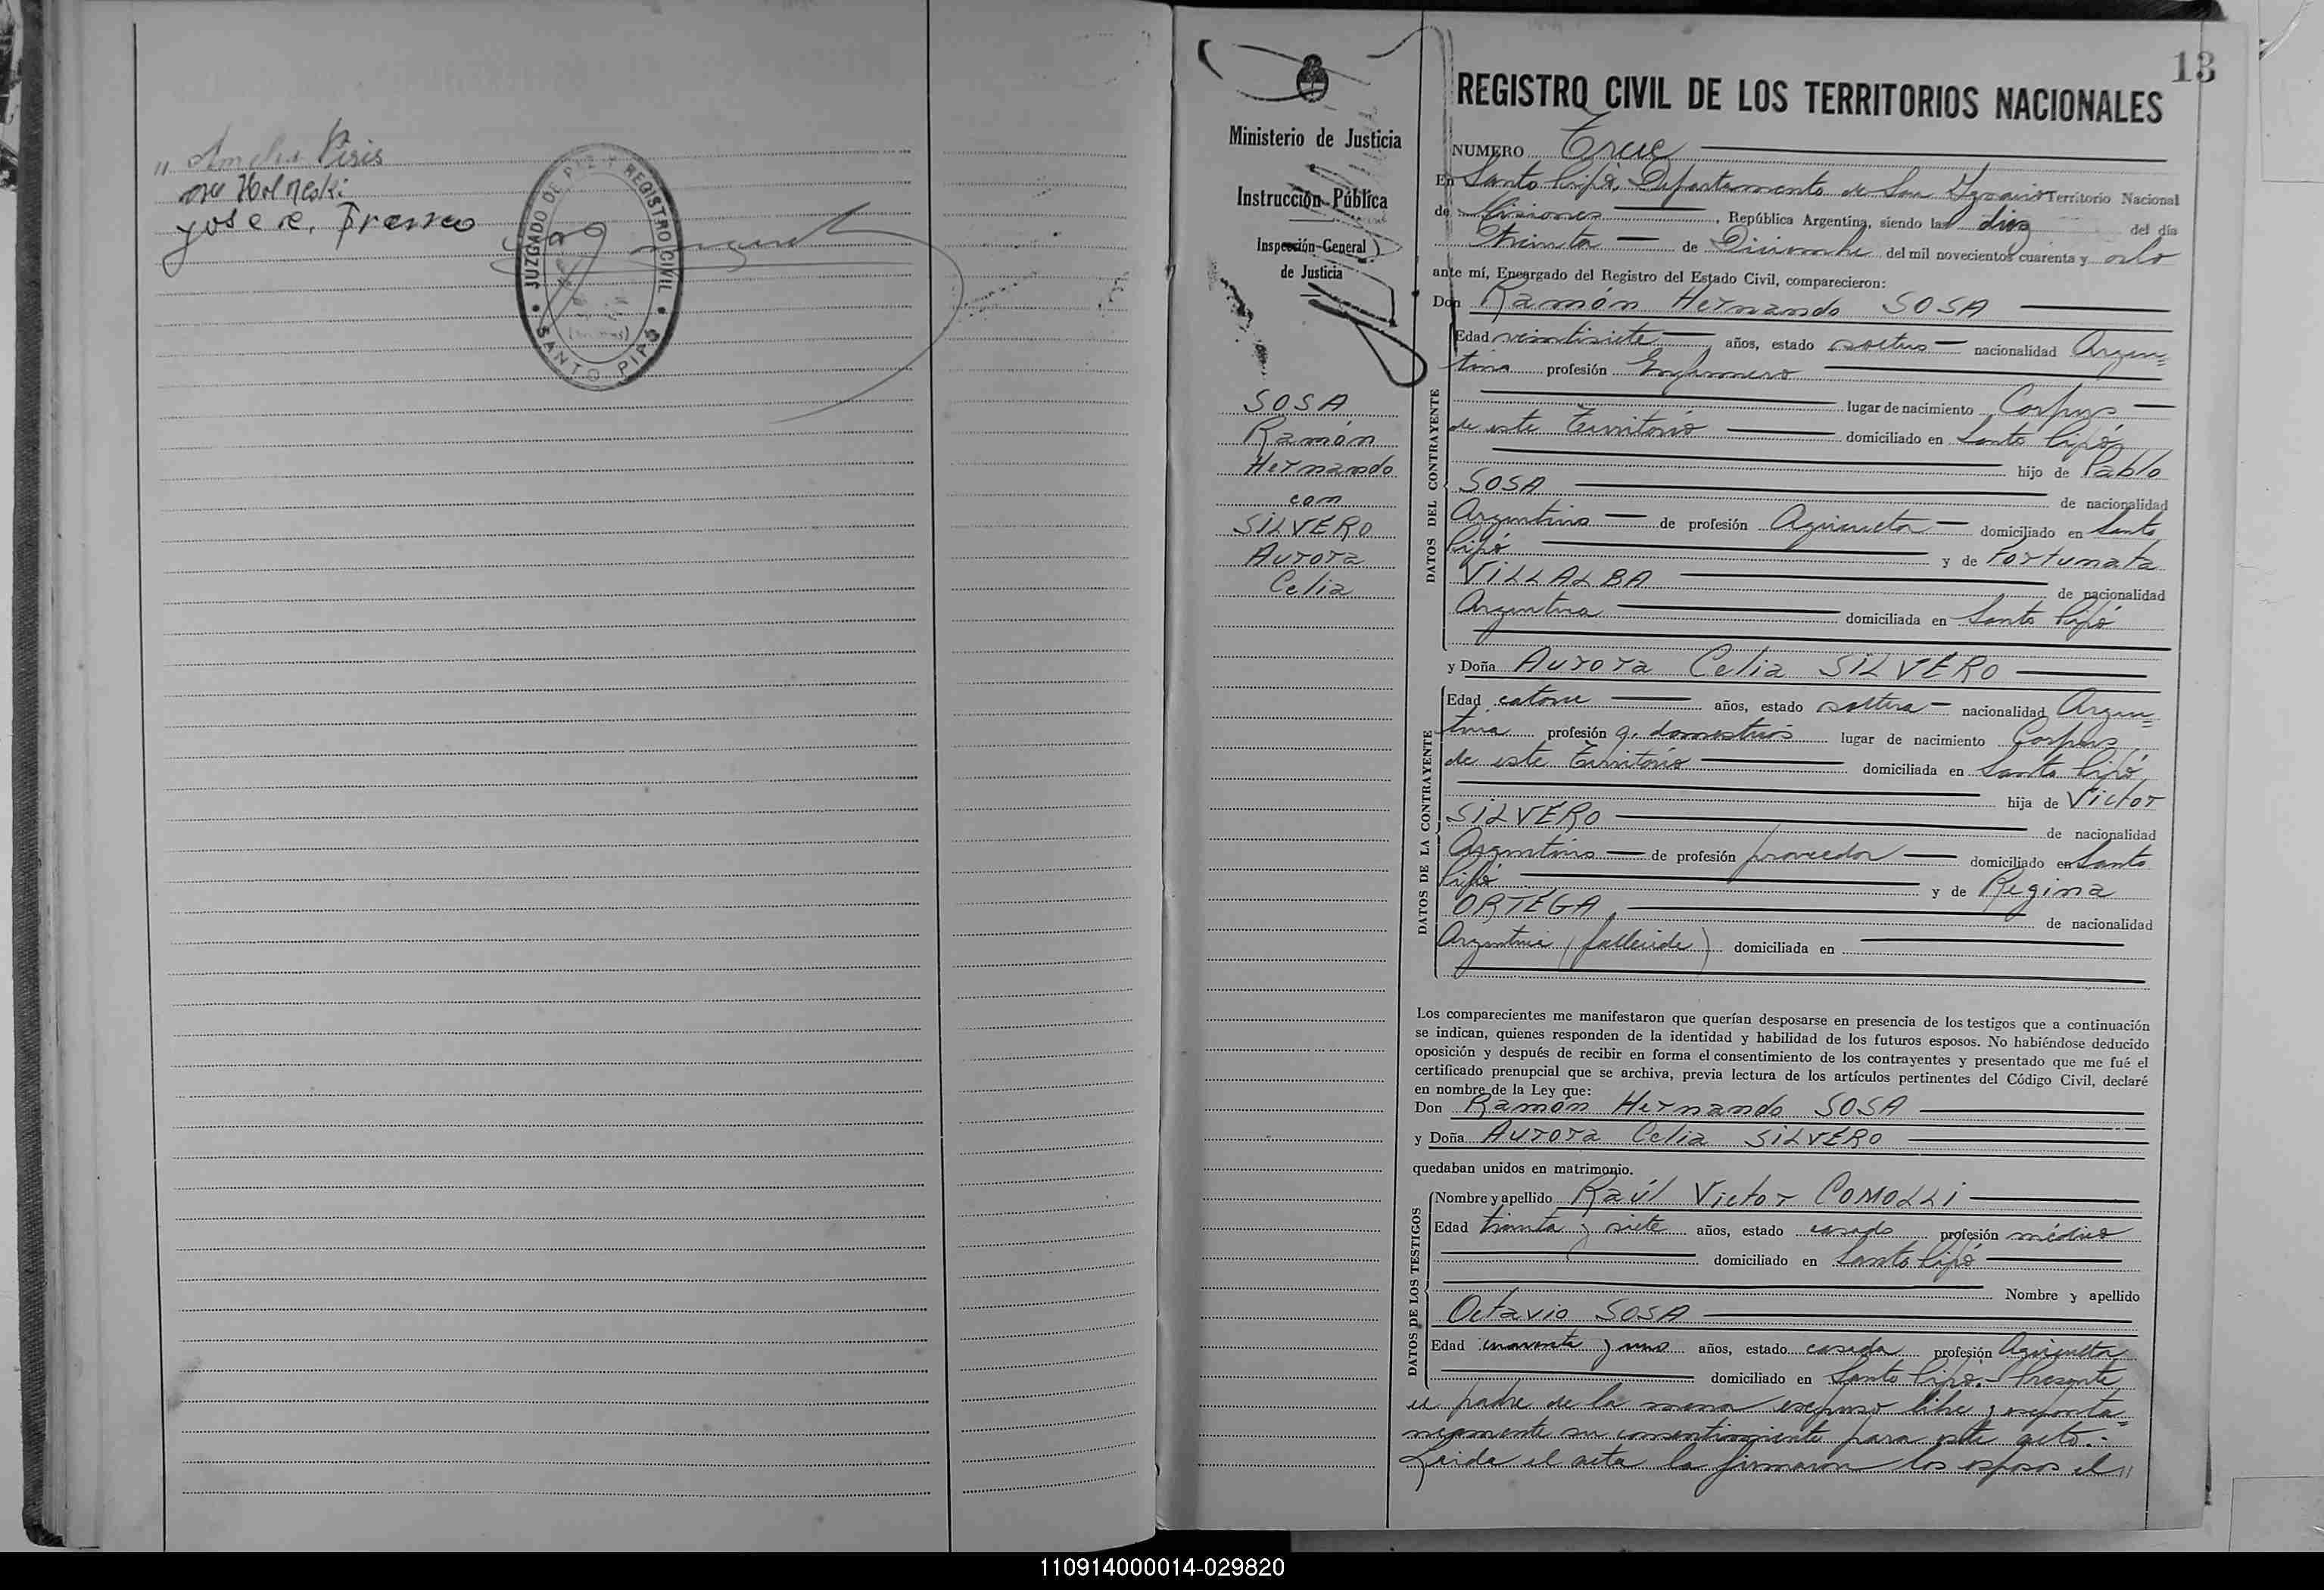 " Amelia Piris
José R. Franco
JUZGADO DE PAZ Y REGISTRO CIVIL
SANTO PIPÓ
(Misiones)
13
Ministerio de Justicia
Instrucción Pública
Inspección General
de Justicia
SOSA
Ramón
Hernando
con
SILVERO
Aurora
Celia
REGISTRO CIVIL DE LOS TERRITORIOS NACIONALES
NUMERO Trece
En Santo Pipó, Departamento de San Ignacio Territorio Nacional
de Misiones, República Argentina, siendo las diez del día
Treinta de Diciembre del mil novecientos cuarenta y ocho
ante mí, Encargado del Registro del Estado Civil, comparecieron:
Don Ramón Hernando SOSA
DATOS DEL CONTRAYENTE
Edad veintisiete años, estado soltero nacionalidad Argen=
tina profesión Enfermero
lugar de nacimiento Corpus
de este Territorio domiciliado en Santo Pipó
hijo de Pablo
SOSA de nacionalidad
Argentino de profesión Agricultor domiciliado en Santo
Pipó y de Fortunata
VILLALBA de nacionalidad
Argentina domiciliada en Santo Pipó
y Doña Aurora Celia SILVERO
DATOS DE LA CONTRAYENTE
Edad catorce años, estado soltera nacionalidad Argen=
tina profesión q. domésticos lugar de nacimiento Corpus
de este Territorio domiciliada en Santo Pipó,
hija de Victor
SILVERO de nacionalidad
Argentino de profesión proveedor domiciliado en Santo
Pipó y de Regina
ORTEGA de nacionalidad
Argentina (fallecida) domiciliada en
Los comparecientes me manifestaron que querían desposarse en presencia de los testigos que a continuación
se indican, quienes responden de la identidad y habilidad de los futuros esposos. No habiéndose deducido
oposición y después de recibir en forma el consentimiento de los contrayentes y presentado que me fué el
certificado prenupcial que se archiva, previa lectura de los artículos pertinentes del Código Civil, declaré
en nombre de la Ley que:
Don Ramón Hernando SOSA
y Doña Aurora Celia SILVERO
quedaban unidos en matrimonio.
DATOS DE LOS TESTIGOS
Nombre y apellido Raúl Victor COMOLLI
Edad treinta y siete años, estado casado profesión médico
domiciliado en Santo Pipó
Nombre y apellido
Octavio SOSA
Edad cuarenta y uno años, estado casado profesión Agricultor
domiciliado en Santo Pipó.- Presente
el padre de la menor expuso libre y esponta=
neamente su consentimiento para este acto.-
Leida el acta la firmaron los esposos el "
110914000014-029820